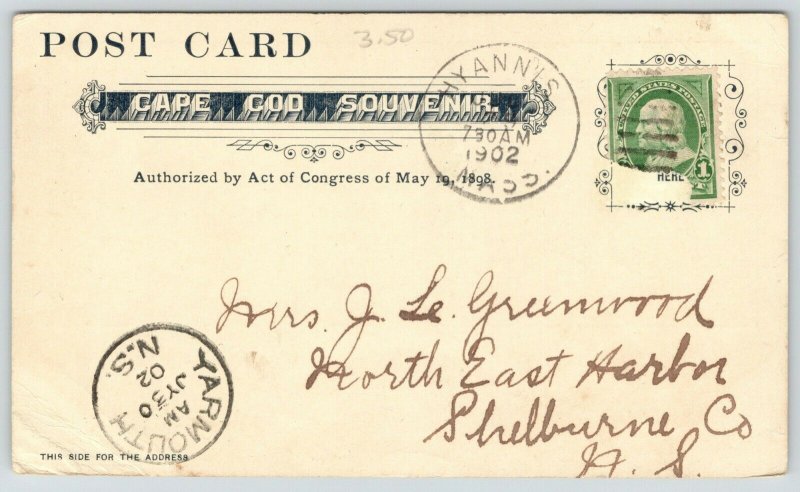 POST CARD
3.50
CAPE COD SOUVENIR.
Authorized by Act of Congress of May 19, 1898.
HYANNIS
730AM
1902
MASS.
UNITED STATES POSTAGE
1
HERE
Mrs. J. Le. Greenwood
North East Harbor
Shelburne Co
N. S.
YARMOUTH
AM
JY30
02
N.S.
THIS SIDE FOR THE ADDRESS